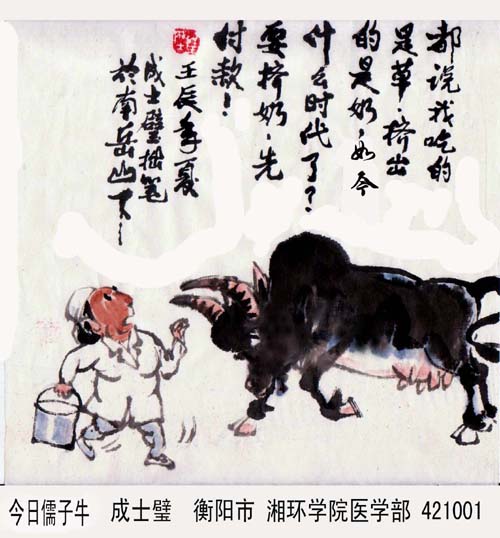 都说我吃的
是草，挤出
的是奶，如今
什么时代了？
要挤奶，先
付款！
壬辰年夏
成士璧拙笔
於南岳山下
今日儒子牛 成士璧 衡阳市 湘环学院医学部 421001